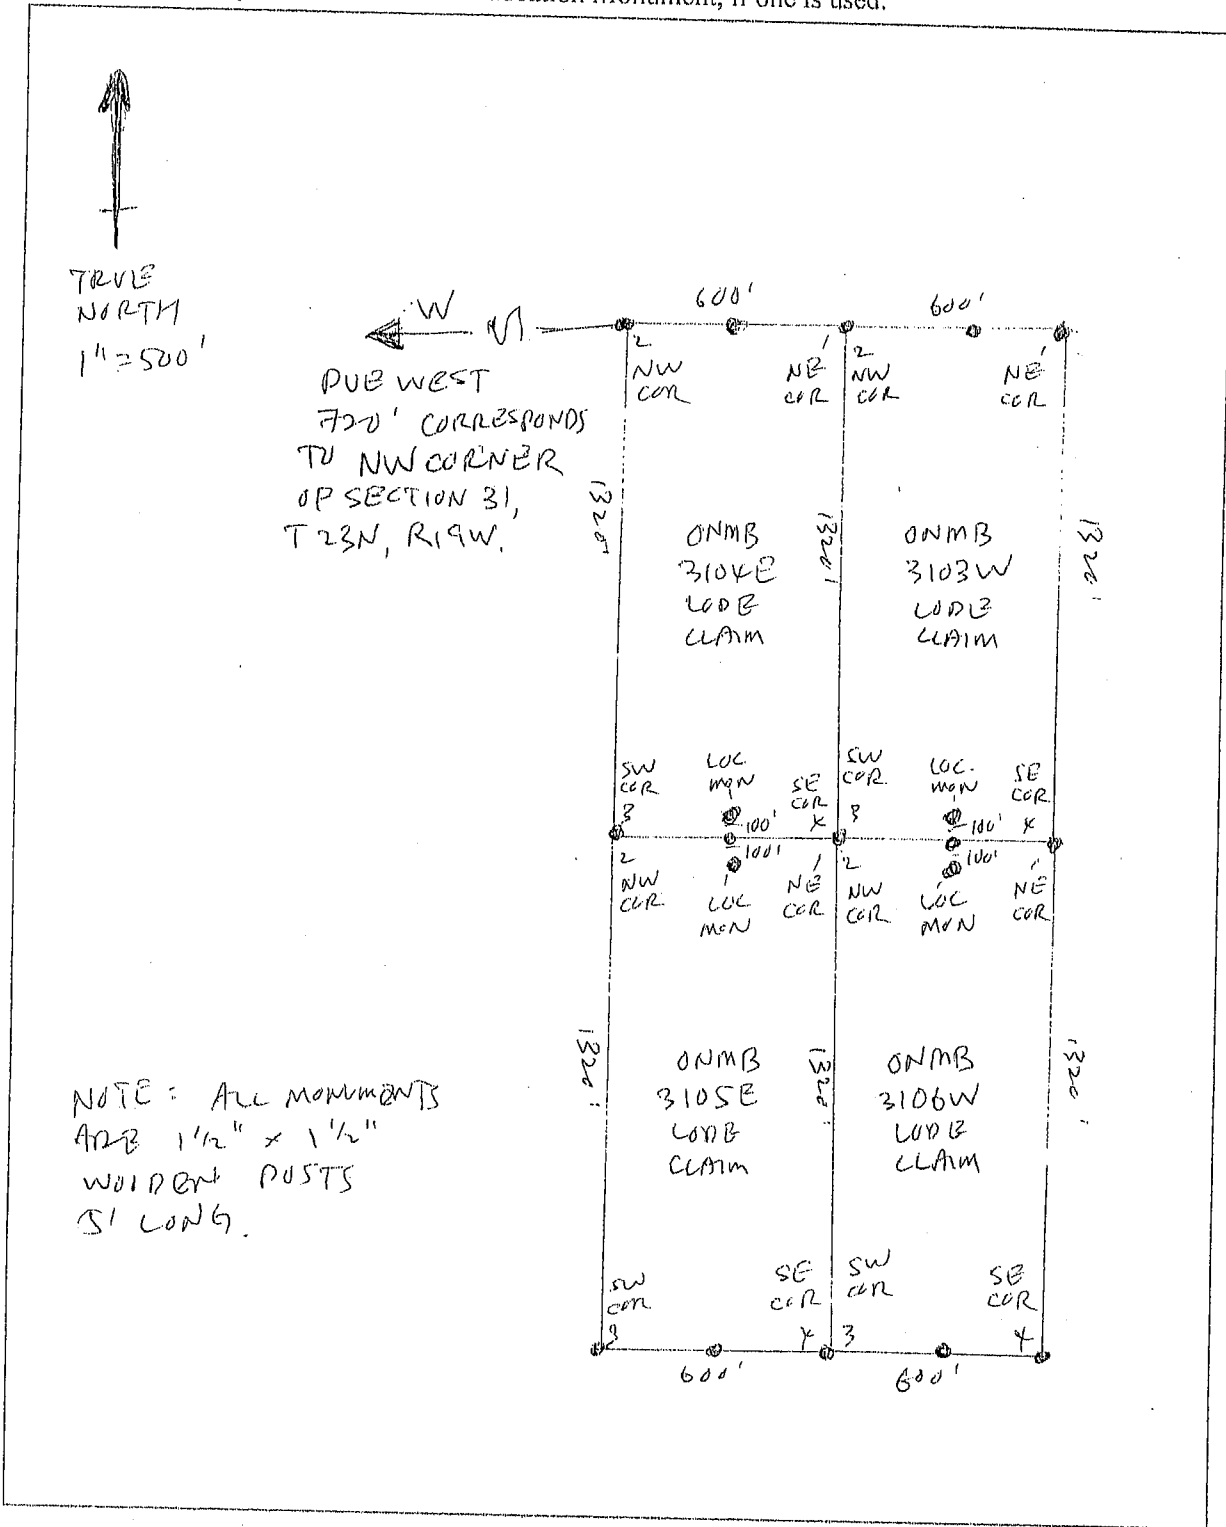 Monument, if one is used.
TRUE
NORTH
1" = 500'
W
DUE WEST
720' CORRESPONDS
TO NW CORNER
OF SECTION 31,
T23N, R19W.
600'
600'
2
NW
COR
1
NE
COR
2
NW
COR
1
NE
COR
1320'
1320'
1320'
ONMB
3104E
LODE
CLAIM
ONMB
3103W
LODE
CLAIM
SW
COR
3
LOC
MON
SE
COR
4
SW
COR
3
LOC.
MON
SE
COR
4
100'
100'
100'
100'
2
NW
COR
LOC
MON
1
NE
COR
2
NW
COR
LOC
MON
1
NE
COR
1320'
1320'
1320'
ONMB
3105E
LODE
CLAIM
ONMB
3106W
LODE
CLAIM
NOTE: ALL MONUMENTS
ARE 1 1/2" x 1 1/2"
WOODEN POSTS
5' LONG.
SW
COR
3
SE
COR
4
SW
COR
3
SE
COR
4
600'
600'